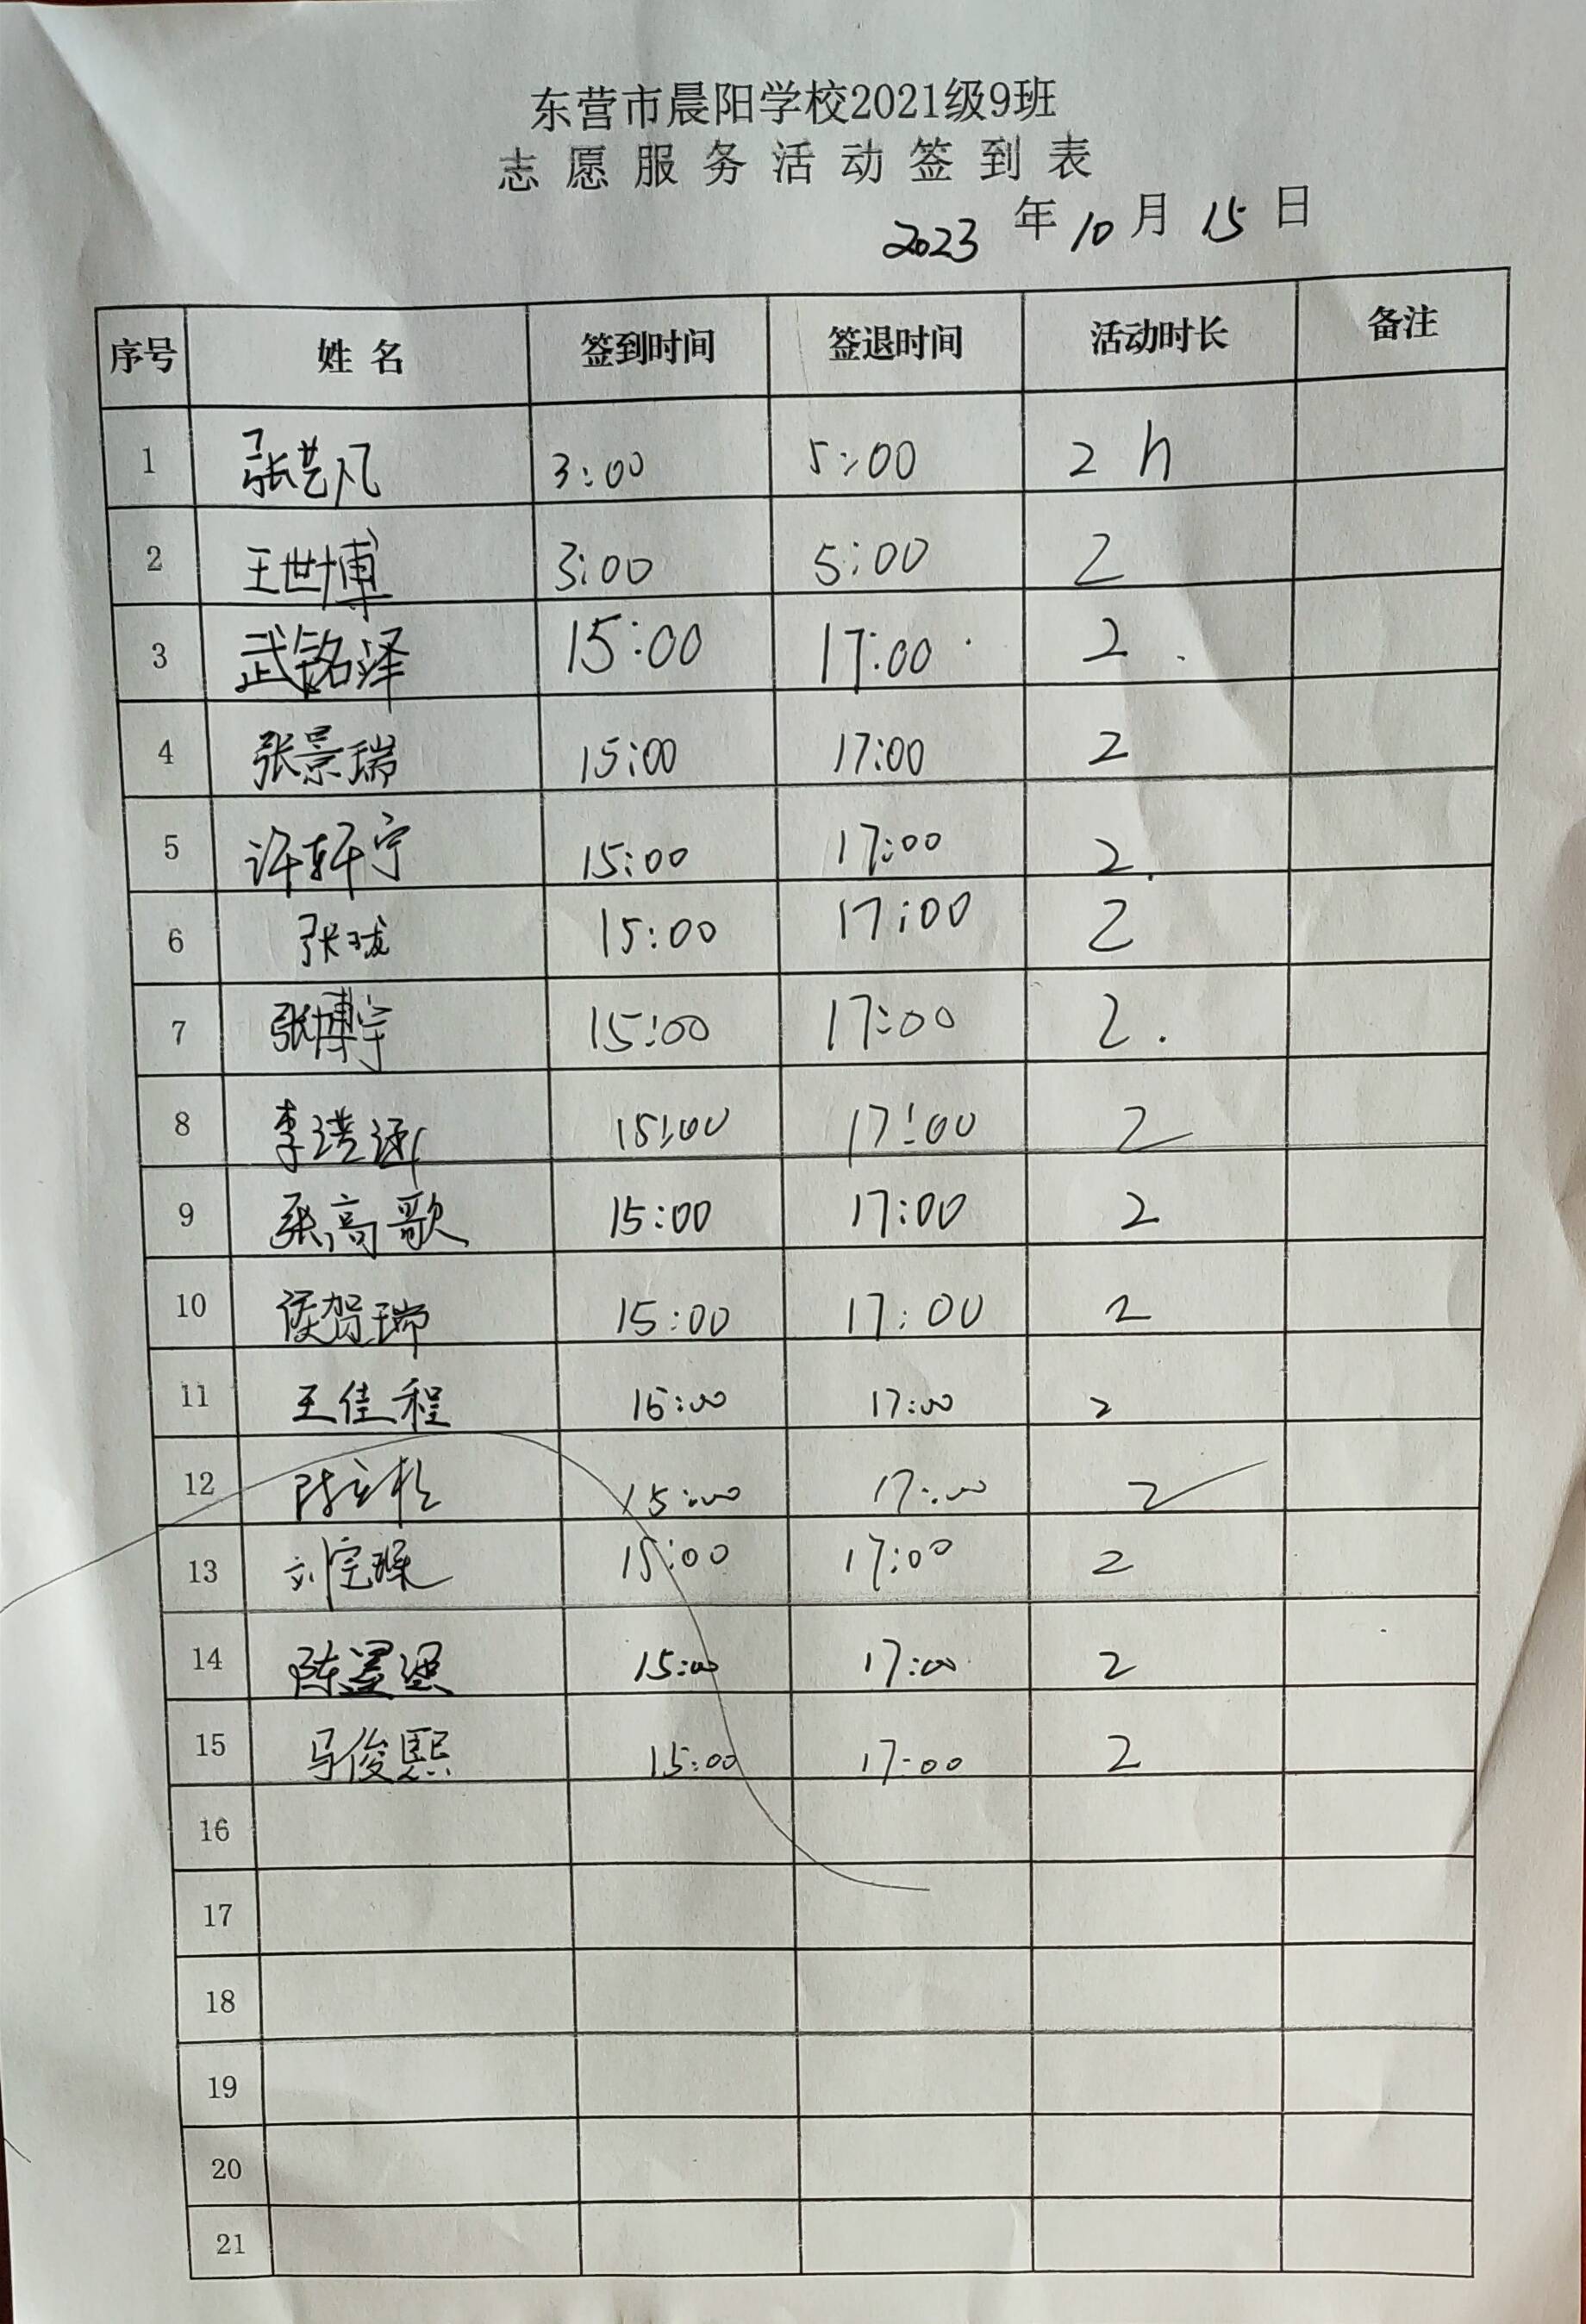 东营市晨阳学校2021级9班
志愿服务活动签到表
2023 年 10 月 15 日
序号 姓名 签到时间 签退时间 活动时长 备注
1 张艺凡 3:00 5:00 2 h
2 王世博 3:00 5:00 2
3 武铭泽 15:00 17:00 2
4 张景瑞 15:00 17:00 2
5 许轩宁 15:00 17:00 2
6 张珑 15:00 17:00 2
7 张博宇 15:00 17:00 2
8 李 15:00 17:00 2
9 张高歌 15:00 17:00 2
10 侯贺瑞 15:00 17:00 2
11 王佳程 15:00 17:00 2
12 陈立松 15:00 17:00 2
13 刘宝琛 15:00 17:00 2
14 陈 15:00 17:00 2
15 马俊熙 15:00 17:00 2
16
17
18
19
20
21